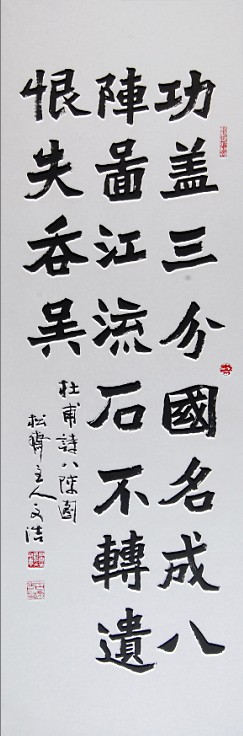 功盖三分國名成八
陣啚江流石不轉遺
恨失吞吴
杜甫詩八陣圖
主人文浩